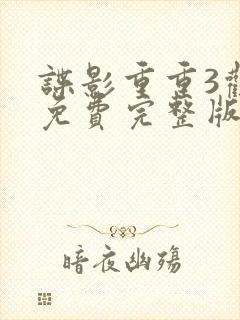 諜影重重3
免費完整版
暗夜幽殤